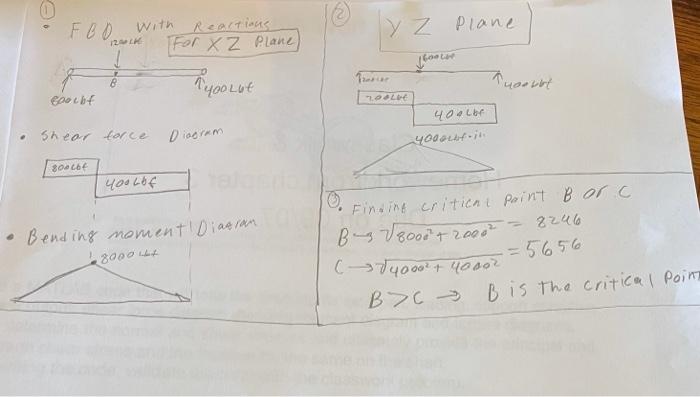 ①
• FBD With Reactions
For XZ Plane
1200Lbf
B
800Lbf
400Lbf
• Shear force Diagram
800Lbf
400Lbf
• Bending moment Diagram
8000
②
YZ Plane
600Lbf
400Lbf
200Lbf
400Lbf
4000Lbf-in
③. Finding critical Point B or C
B→ √8000²+2000² = 8246
C→ √4000²+4000² = 5656
B>C → B is the critical Point